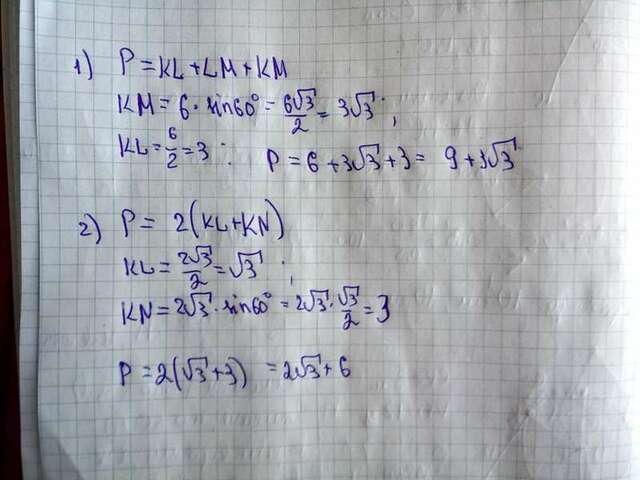 1) P = KL + LM + KM
KM = 6 · sin60° = 6√3/2 = 3√3;
KL = 6/2 = 3; P = 6 + 3√3 + 3 = 9 + 3√3
2) P = 2(KL + KN)
KL = 2√3/2 = √3;
KN = 2√3 · sin60° = 2√3 · √3/2 = 3
P = 2(√3 + 3) = 2√3 + 6